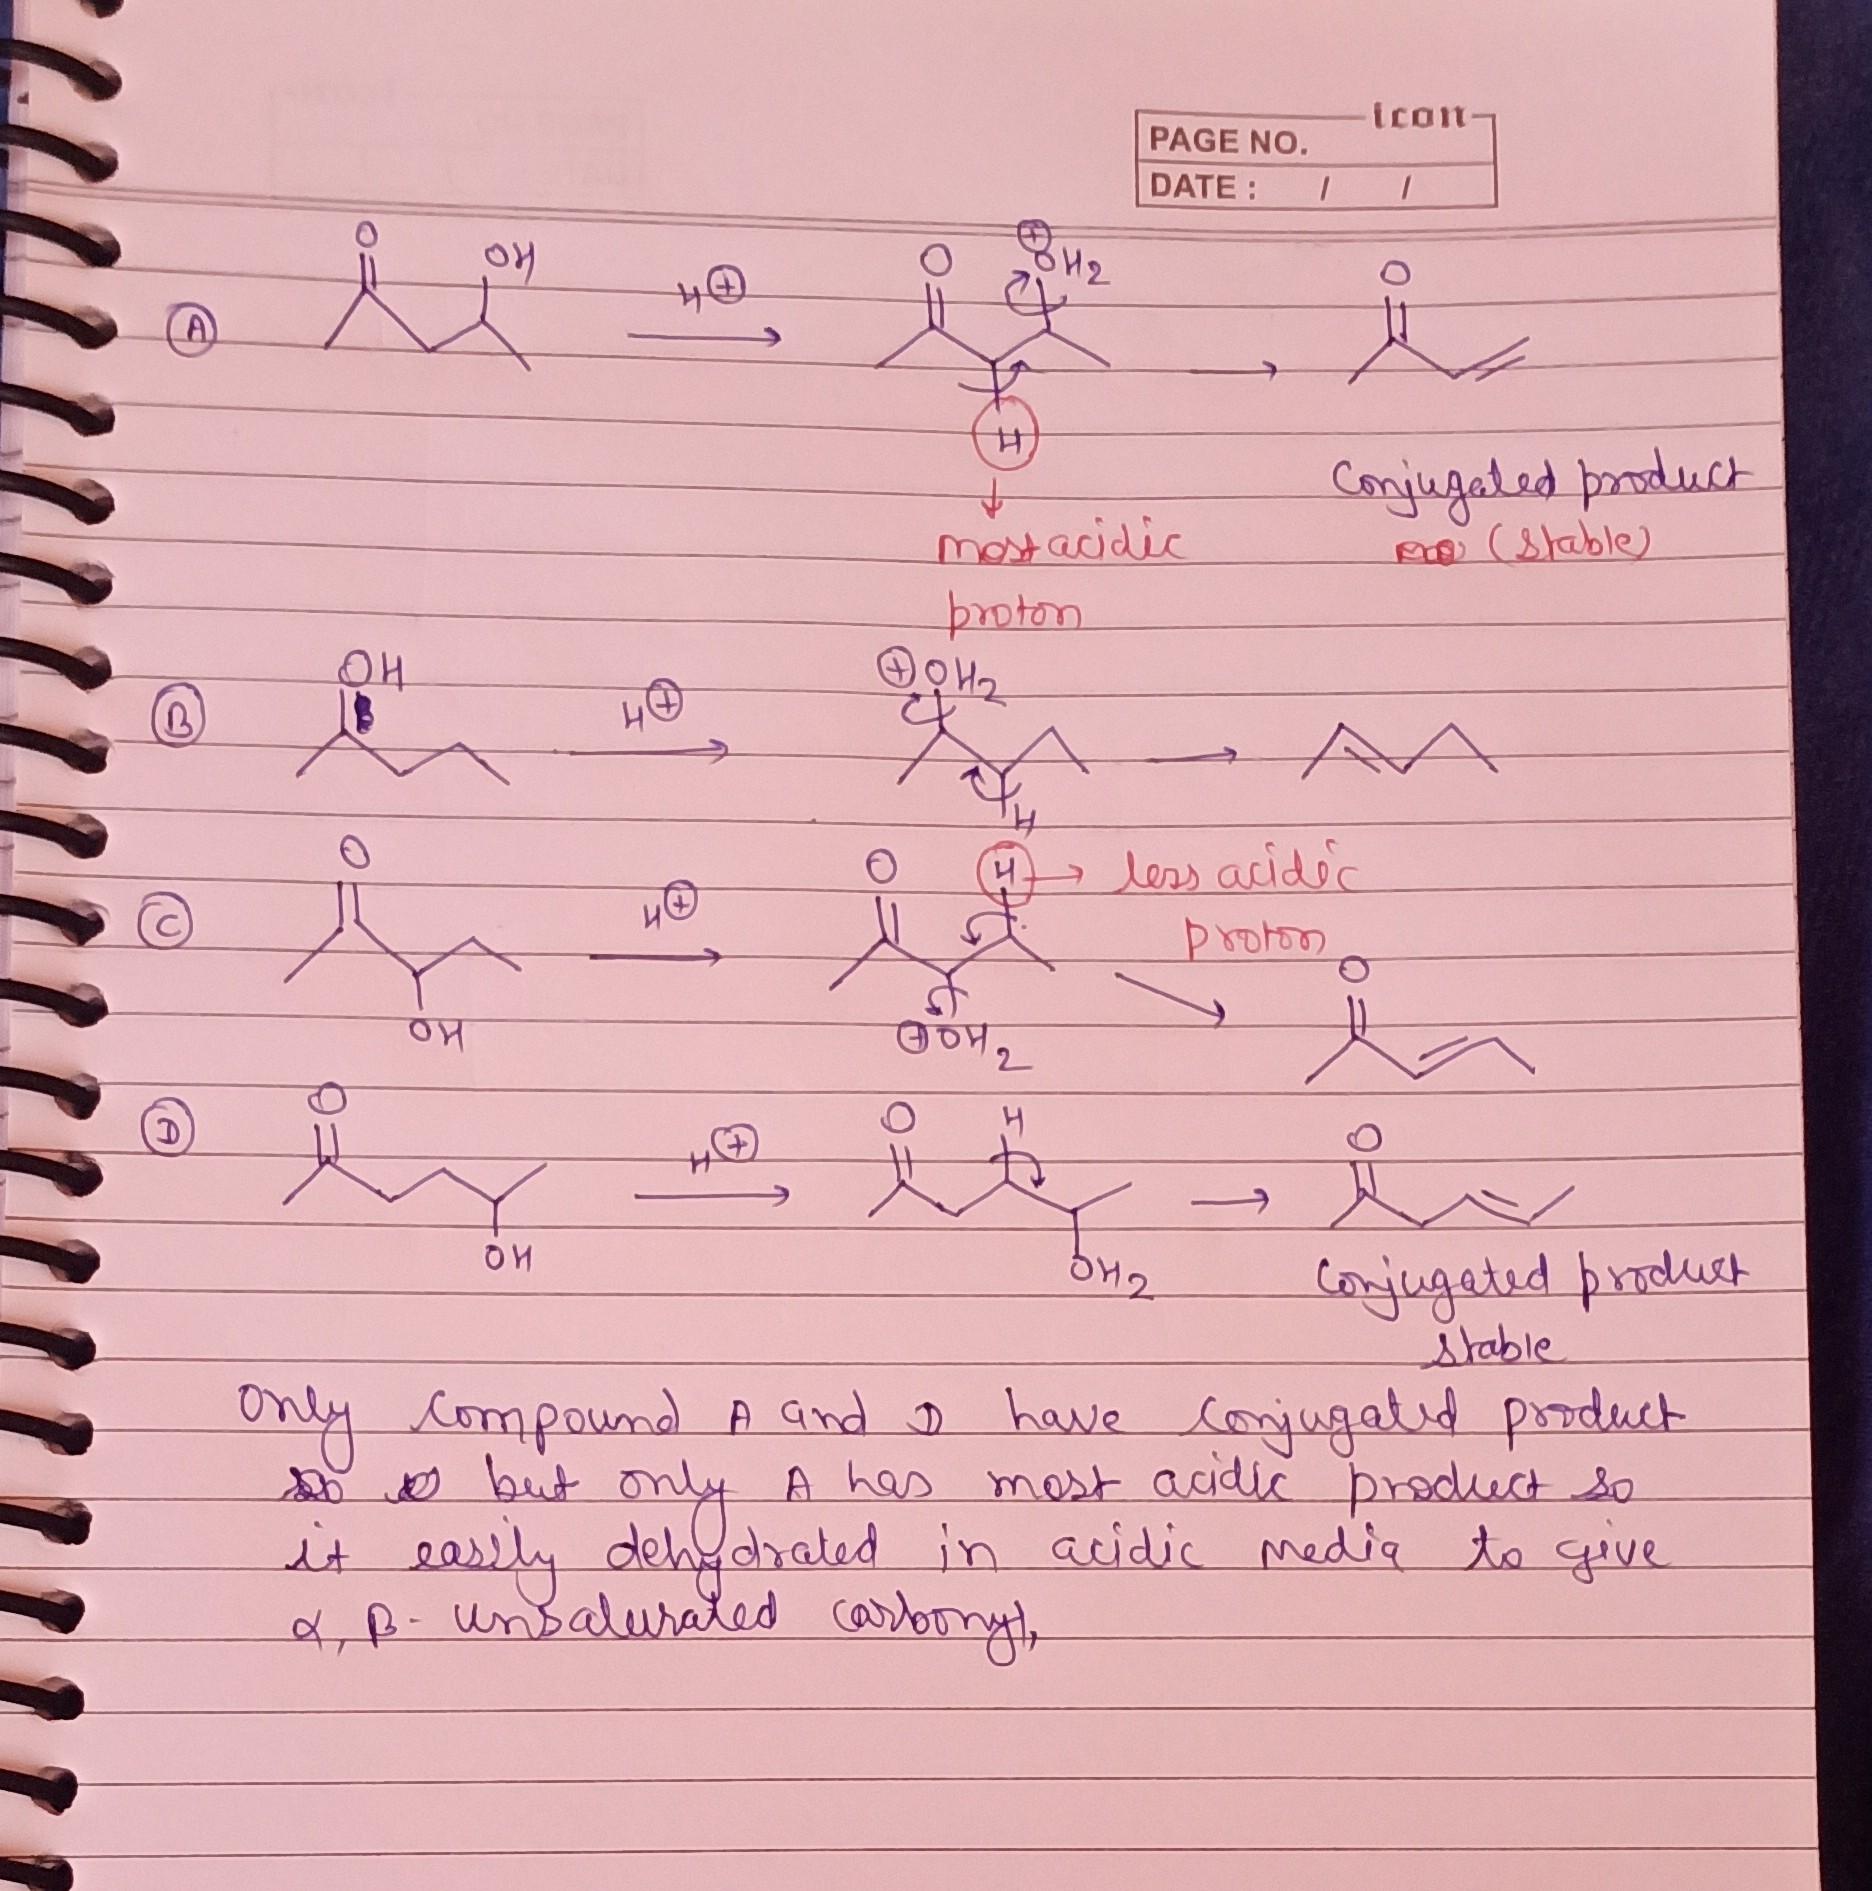 icon
PAGE NO.
DATE : / /
O OH O ⊕ OH2 O
A H⊕
H
Conjugated product
most acidic (stable)
proton
OH ⊕OH2
B H⊕
H
O O H → less acidic
C H⊕ proton
O
OH ⊕OH2
O O H O
D H⊕
OH OH2 Conjugated product
stable
Only compound A and D have conjugated product
but only A has most acidic product so
it easily dehydrated in acidic media to give
α, β- unsaturated carbonyl,